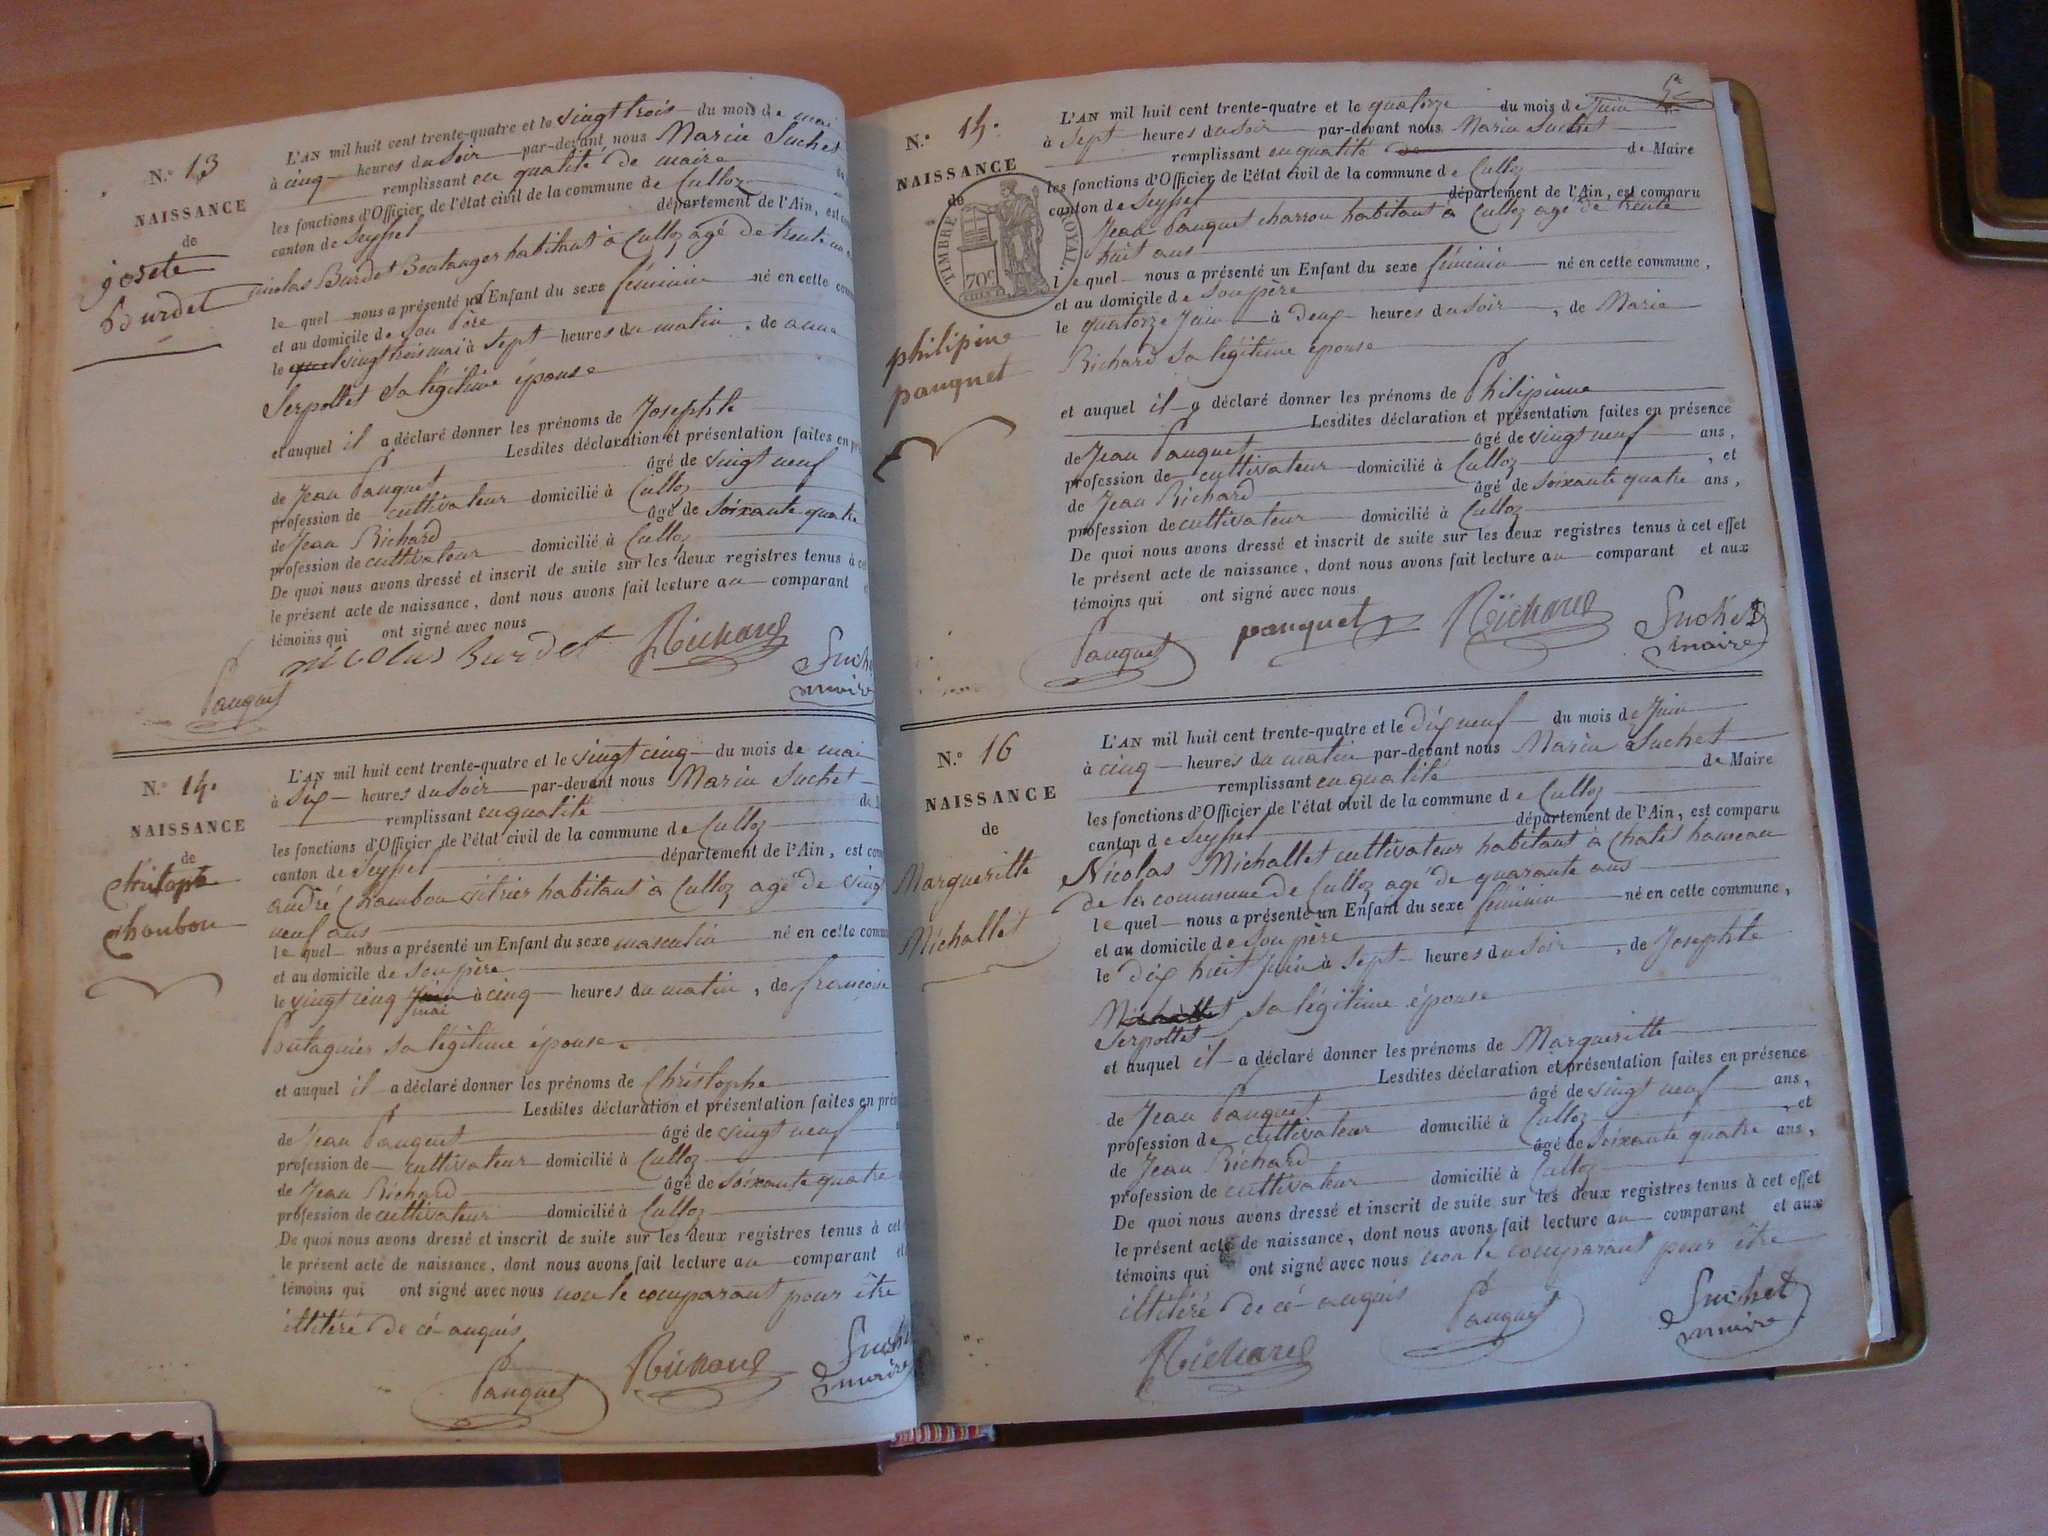 N.° 13
NAISSANCE
de
josete
Burdet
L'AN mil huit cent trente-quatre et le vingt trois du mois de mai
à cinq heures du soir par-devant nous Marin Suchet
remplissant en qualité de maire
les fonctions d'Officier de l'état civil de la commune de Culloz
canton de Seyssel département de l'Ain, est
nicolas Burdet Boulanger habitant à Culloz agé de trente
le quel nous a présenté un Enfant du sexe féminin né en cette
et au domicile de son Père
le vingt trois mai à sept heures du matin, de anne
Serpollet sa légitime épouse
et auquel il a déclaré donner les prénoms de Josephte
Lesdites déclaration et présentation faites en
de Jean Pauquet âgé de vingt neuf
profession de cultivateur domicilié à Culloz
de Jean Richard âgé de soixante quatre
profession de cultivateur domicilié à Culloz
De quoi nous avons dressé et inscrit de suite sur les deux registres tenus à
le présent acte de naissance, dont nous avons fait lecture au comparant
témoins qui ont signé avec nous
nicolas Burdet Richard
Pauquet maire
N.° 14.
NAISSANCE
de
chritophe
chanbon
L'AN mil huit cent trente-quatre et le vingt cinq du mois de mai
à six heures du soir par-devant nous Marin Suchet
remplissant en qualité
les fonctions d'Officier de l'état civil de la commune de Culloz
canton de Seyssel département de l'Ain, est
andré Chambon vitrier habitant à Culloz agé de vingt
neuf ans
le quel nous a présenté un Enfant du sexe masculin né en cette
et au domicile de son père
le vingt cinq juin à cinq heures du matin, de françoise
mai
sa légitime épouse
et auquel il a déclaré donner les prénoms de Christophe
Lesdites déclaration et présentation faites en
de Jean Pauquet âgé de vingt neuf
profession de cultivateur domicilié à Culloz
de Jean Richard âgé de soixante quatre
profession de cultivateur domicilié à Culloz
De quoi nous avons dressé et inscrit de suite sur les deux registres tenus à cet
le présent acte de naissance, dont nous avons fait lecture au comparant et
témoins qui ont signé avec nous non le comparant pour être
illitéré de cé anquis
Pauquet Richard
maire
N.° 15.
NAISSANCE
de
TIMBRE ROYAL.
70c
philipine
pauquet
L'AN mil huit cent trente-quatre et le quatorze du mois de Juin
à sept heures du soir par-devant nous Marin Suchet
remplissant en qualité de de Maire
les fonctions d'Officier de l'état civil de la commune de Culloz
canton de Seyssel département de l'Ain, est comparu
Jean Pauquet charron habitant à Culloz agé de trente
huit ans
le quel nous a présenté un Enfant du sexe féminin né en cette commune,
et au domicile de son père
le quatorze Juin à deux heures du soir, de Marie
Richard sa légitime épouse
et auquel il a déclaré donner les prénoms de Philipinne
Lesdites déclaration et présentation faites en présence
de Jean Pauquet âgé de vingt neuf ans,
profession de cultivateur domicilié à Culloz, et
de Jean Richard âgé de soixante quatre ans,
profession de cultivateur domicilié à Culloz
De quoi nous avons dressé et inscrit de suite sur les deux registres tenus à cet effet
le présent acte de naissance, dont nous avons fait lecture au comparant et aux
témoins qui ont signé avec nous
Pauquet pauquet Richard Suchet
maire
N.° 16
NAISSANCE
de
Margueritte
Michallet
L'AN mil huit cent trente-quatre et le dix neuf du mois de Juin
à cinq heures du matin par-devant nous Marin Suchet
remplissant en qualité de Maire
les fonctions d'Officier de l'état civil de la commune de Culloz
canton de Seyssel département de l'Ain, est comparu
Nicolas Michallet cultivateur habitant à Chatel hameau
de la commune de Culloz agé de quarante ans
le quel nous a présenté un Enfant du sexe féminin né en cette commune,
et au domicile de son père
le dix huit Juin à sept heures du soir, de Josephte
Michallet sa légitime épouse
Serpollet
et auquel il a déclaré donner les prénoms de Margueritte
Lesdites déclaration et présentation faites en présence
de Jean Pauquet âgé de vingt neuf ans,
profession de cultivateur domicilié à Culloz, et
de Jean Richard âgé de soixante quatre ans,
profession de cultivateur domicilié à Culloz
De quoi nous avons dressé et inscrit de suite sur les deux registres tenus à cet effet
le présent acte de naissance, dont nous avons fait lecture au comparant et aux
témoins qui ont signé avec nous non le comparant pour être
illitéré de cé anquis
Richard Pauquet Suchet
maire